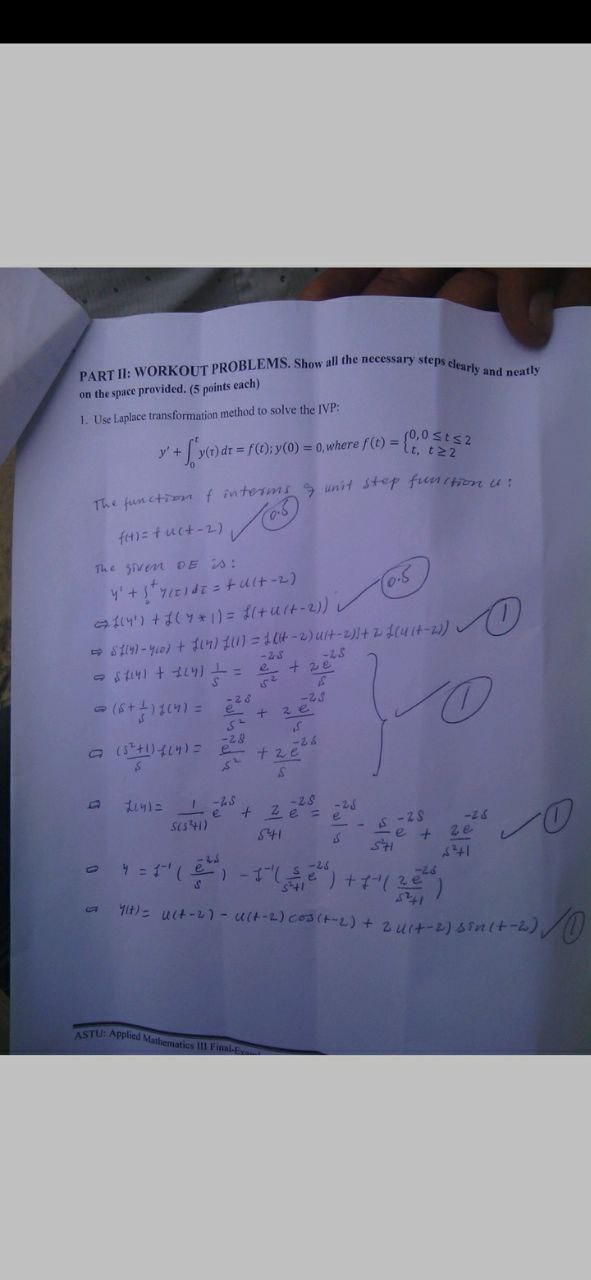 PART II: WORKOUT PROBLEMS. Show all the necessary steps clearly and neatly
on the space provided. (5 points each)
1. Use Laplace transformation method to solve the IVP:
y' + ∫₀ᵗ y(τ) dτ = f(t); y(0) = 0, where f(t) = {0, 0 ≤ t ≤ 2
t, t ≥ 2
The function f interms of unit step function u:
f(t) = t u(t-2) ✓ 0.5
The given DE is:
y' + ∫₀ᵗ y(τ) dτ = t u(t-2)
⇒ ℒ(y') + ℒ(y * 1) = ℒ(t u(t-2)) ✓ 0.5
⇒ sℒ(y) - y(0) + ℒ(y) ℒ(1) = ℒ[(t-2) u(t-2)] + 2 ℒ(u(t-2)) ✓ 1
⇒ sℒ(y) + ℒ(y) 1/s = e^-2s/s² + 2e^-2s/s
⇒ (s + 1/s) ℒ(y) = e^-2s/s² + 2e^-2s/s ✓ 1
⇒ (s²+1)/s ℒ(y) = e^-2s/s² + 2e^-2s/s
⇒ ℒ(y) = 1/(s(s²+1)) e^-2s + 2/(s²+1) e^-2s = e^-2s/s - s/(s²+1) e^-2s + 2e^-2s/(s²+1) ✓ 1
⇒ y = ℒ⁻¹(e^-2s/s) - ℒ⁻¹(s/(s²+1) e^-2s) + ℒ⁻¹(2e^-2s/(s²+1))
⇒ y(t) = u(t-2) - u(t-2) cos(t-2) + 2 u(t-2) sin(t-2) ✓ 1
ASTU: Applied Mathematics III Final-Exam